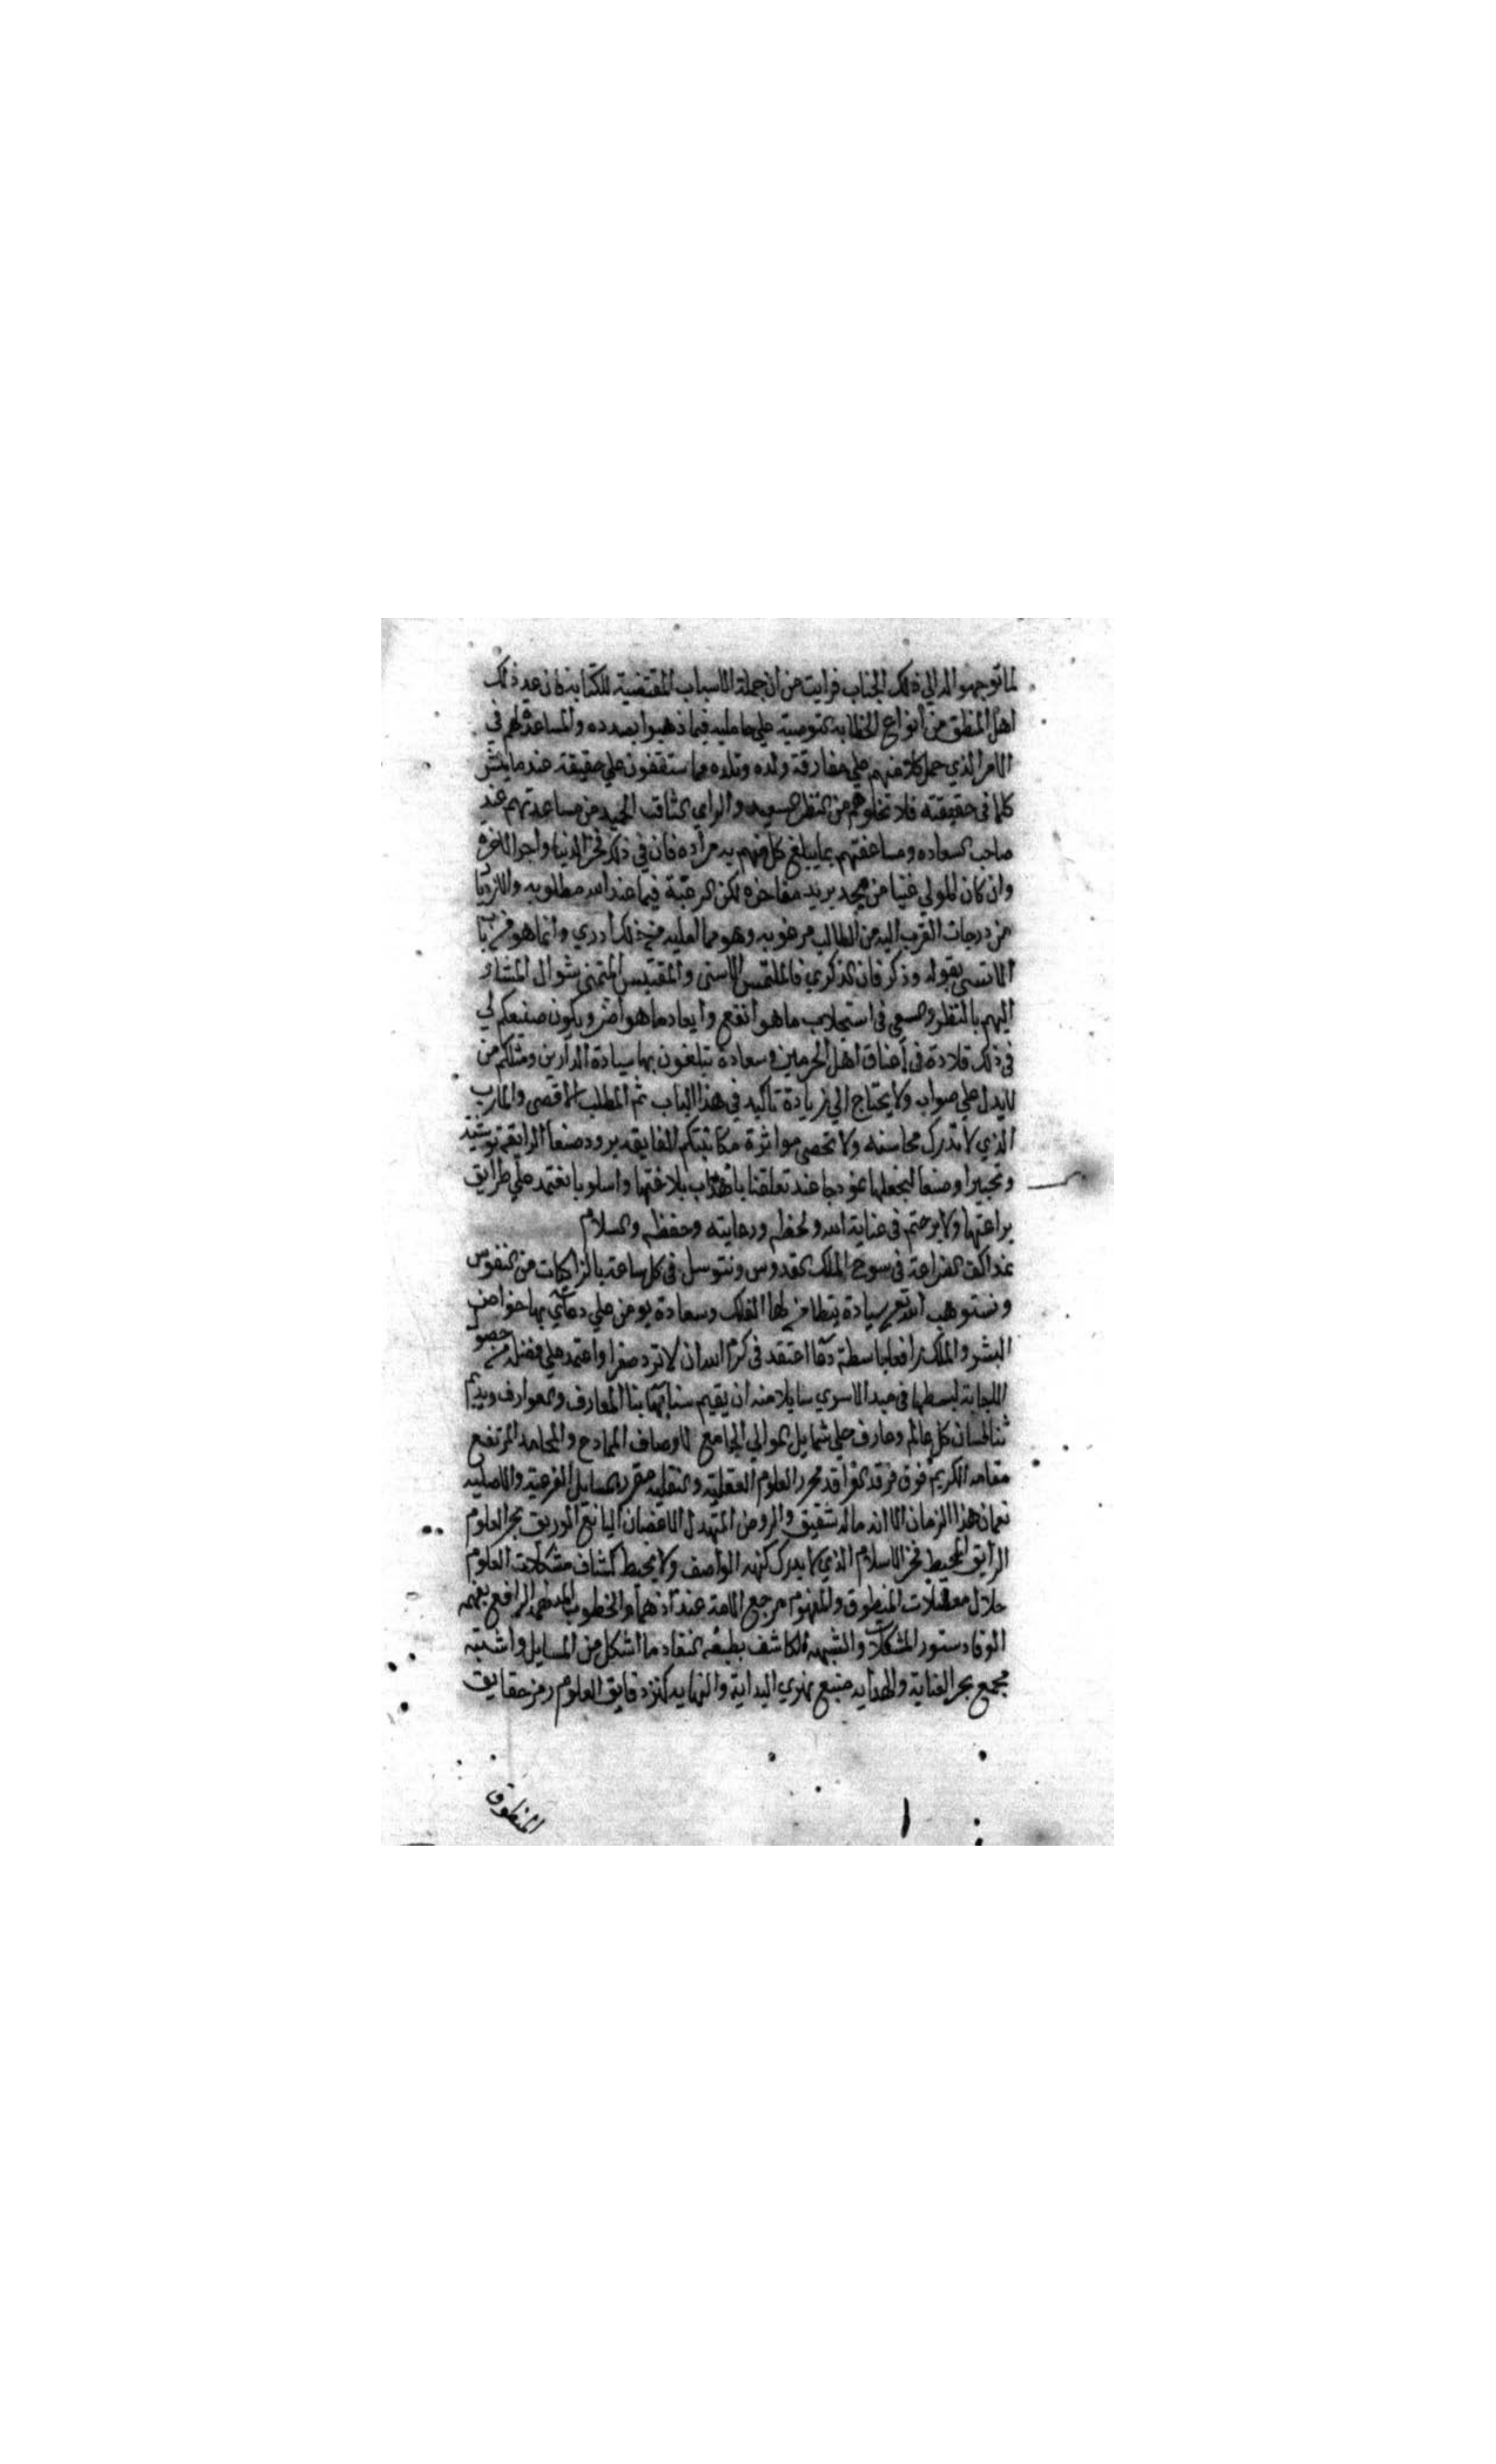 لما توجهوا الي ذلك الجناب فرايت من ان جملة الاسباب المقتضية للكتابة فان عد ذلك
اهل المنطق من انواع الخطابة توصية علي حامليه فيما ذهبوا بصدده والمساعدة لهم في
الامر الذي حمل كلا منهم علي مفارقة ولده وتلده مما ستقفون علي حقيقته عند ما
كلما في حقيقته فلا تخلوهم من النظر السعيد والراي الثاقب الحميد من مساعدتهم عند
صاحب السعاده ومساعفتهم بما يبلغ كل منهم به مراده فان في ذلك فخر الدنيا واجر الاخرة
وان كان المولي غنيا من مجد يريد مفاخره لكن الرغبة فيما عند الله مطلوبه والازدياد
من درجات القرب اليه من الطالب مرغوبه وهو مما لعليه من ذلك ادري وانما هو من باب
بقوله وذكر فان الذكري فالملتمس الاسني والمقتبس المتمني شوال المشار
اليهم بالنظر والسعي في استجلاب ما هو انفع وابعاد ما هو اضر ويكون صنيعكم لي
في ذلك قلادة في اعناق اهل الحرمين وسعادة تبلغون بها سيادة الدارين ومثلكم من
لا يدل علي صواب ولا يحتاج الي زيادة تاكيد في هذا الباب ثم المطلب الاقصي والمارب
الذي لا تدرك محاسنه ولا تحصي مواترة مكاتبتكم الفايقه برود صنعا الرايقة توشية
وتحبيرا وصنعا لنجعلها نموذجا عند تعلقنا باهداب بلاغتها واسلوبا نعتمد علي طرايق
براعتها ولا برحتم في عناية الله ولحظه ورعايته وحفظه والسلام
نمد اكف الضراعة في سوح الملك القدوس ونتوسل في كل ساعة بالزاكيات من النفوس
ونستوهب الله تعالي سيادة يتطامن لها الفلك وسعادة يومن علي دعائي بها خواص
البشر والملك رافعا باسطة اعتقد في كرم الله ان لا ترد صفرا واعتمد علي فضله من حصول
الاجابة لبسطها في الاسري سايلا منه ان يقيم بنا المعارف والعوارف ويديم
ثنا لسان كل عالم وعارف علي شمايل الموالي الجامع لاوصاف الممادح والمحامد المرتفع
مقامه الكريم فوق فرقد الفراقد محرر العلوم العقليه والنقليه مقرر المسايل الفرعية والاصليه
نعمان هذا الزمان الا انه ماله شقيق والروض المتهدل الاغصان اليانع الوريق بحر العلوم
الرايق المحيط فخر الاسلام الذي لا يدرك كنهه الواصف ولا يحيط كشاف مشكلات العلوم
حلال معضلات المنطوق والمفهوم مرجع الامة عند ادهما والخطوب المدلهمه الرافع بفهمه
الوقاد ستور المشكلات والشبهه الكاشف بطبعه النقاد ما اشكل من المسايل واشتبه
مجمع بحر العناية والهدايه منبع نهري البداية والنهايه كنز دقايق العلوم رمز حقايق
المنطوق